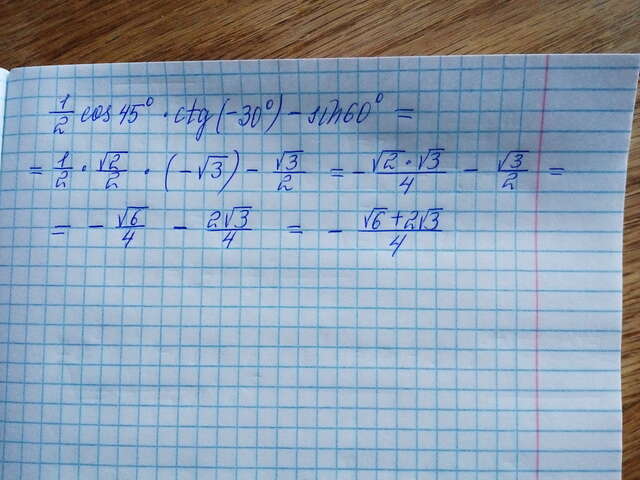 1/2 cos 45° · ctg (-30°) - sin 60° =
= 1/2 · √2/2 · (-√3) - √3/2 = - √2·√3/4 - √3/2 =
= - √6/4 - 2√3/4 = - √6+2√3/4